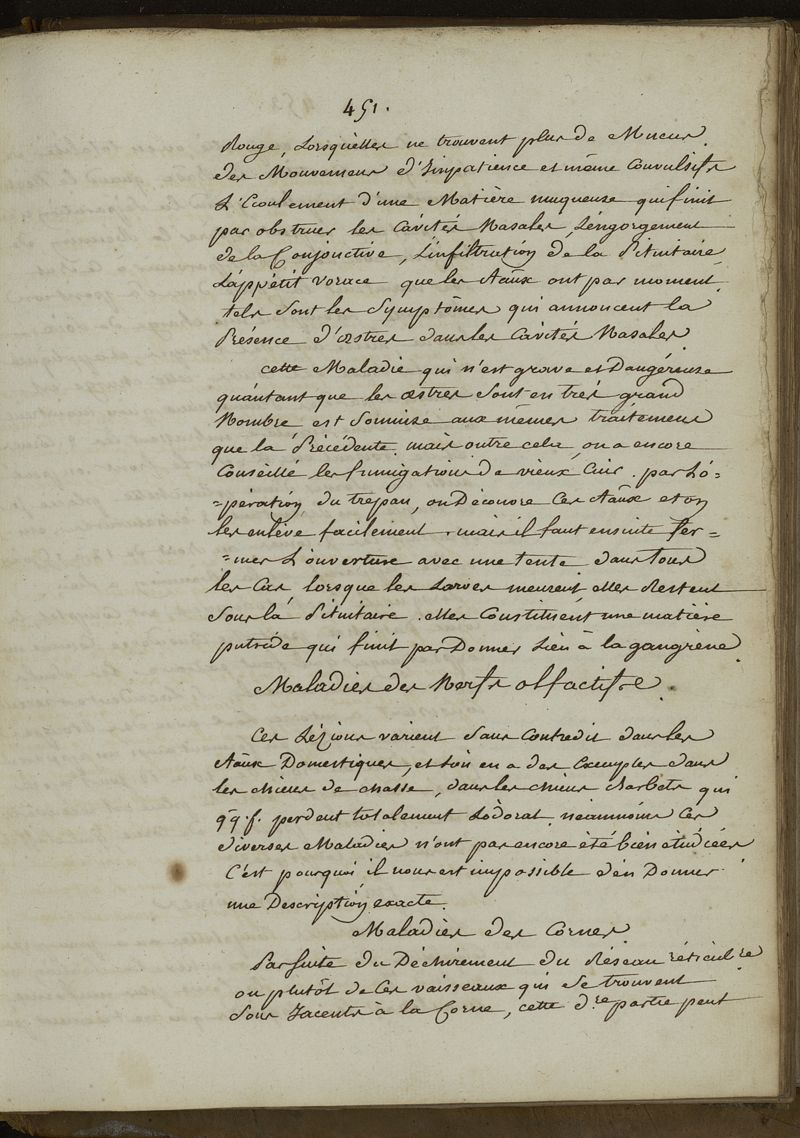 451.
Rouge, Lorsquelles ne trouvent plus de Mucus.
des Mouvemens d'Impatience et même Convulsifs
L'Écoulement d'une Matière muqueuse qui finit
par obstruer les Cavités Nasales, L'engorgement
de la Conjonctive, L'infiltration de la Pituitaire
L'appétit vorace que les Aãux ont par moment
tels Sont les Symptômes qui annoncent la
Présence d'œstres dans les Cavités Nasales.
cette Maladie qui n'est grave et Dangéreuse
qu'autant que les œstres Sont en trés grand
Nombre est Soumise aux mêmes traitemens
que la Précédente. mais outre cela, on a encore
Conseillé les fumigations de vieux Cuir. par Lo=
=pération du trepan, on Découvre Ces Aãux et on
les enléve facilement. mais il faut ensuite fer=
=mer L'ouverture avec une tente dans tous
les Cas, lorsque les Larves meurent elles Restent
Sous la Pituitaire. elles Constituent une matière
putride qui finit par Donner Lieu à la gangrène.
Maladies des Nerfs olfactifs.
Ces Lézions varient Sans Contredit dans les
Aãux Domestiques, et L'on en a des Exemples dans
les chiens de chasse, dans les chiens Barbets qui
qq.f. perdent totalement L'odorat. néanmoins Ces
diverses Maladies n'ont pas encore été bien étudiées
C'est pourquoi il nous est impossible d'en Donner
une Description exacte.
Maladies des Cornes
Par Suite du Déchirement du Réseau réticul.re
ou plutôt de Ces vaisseaux qui Se trouvent
Sous Jacents à la Corne, cette d.re partie peut